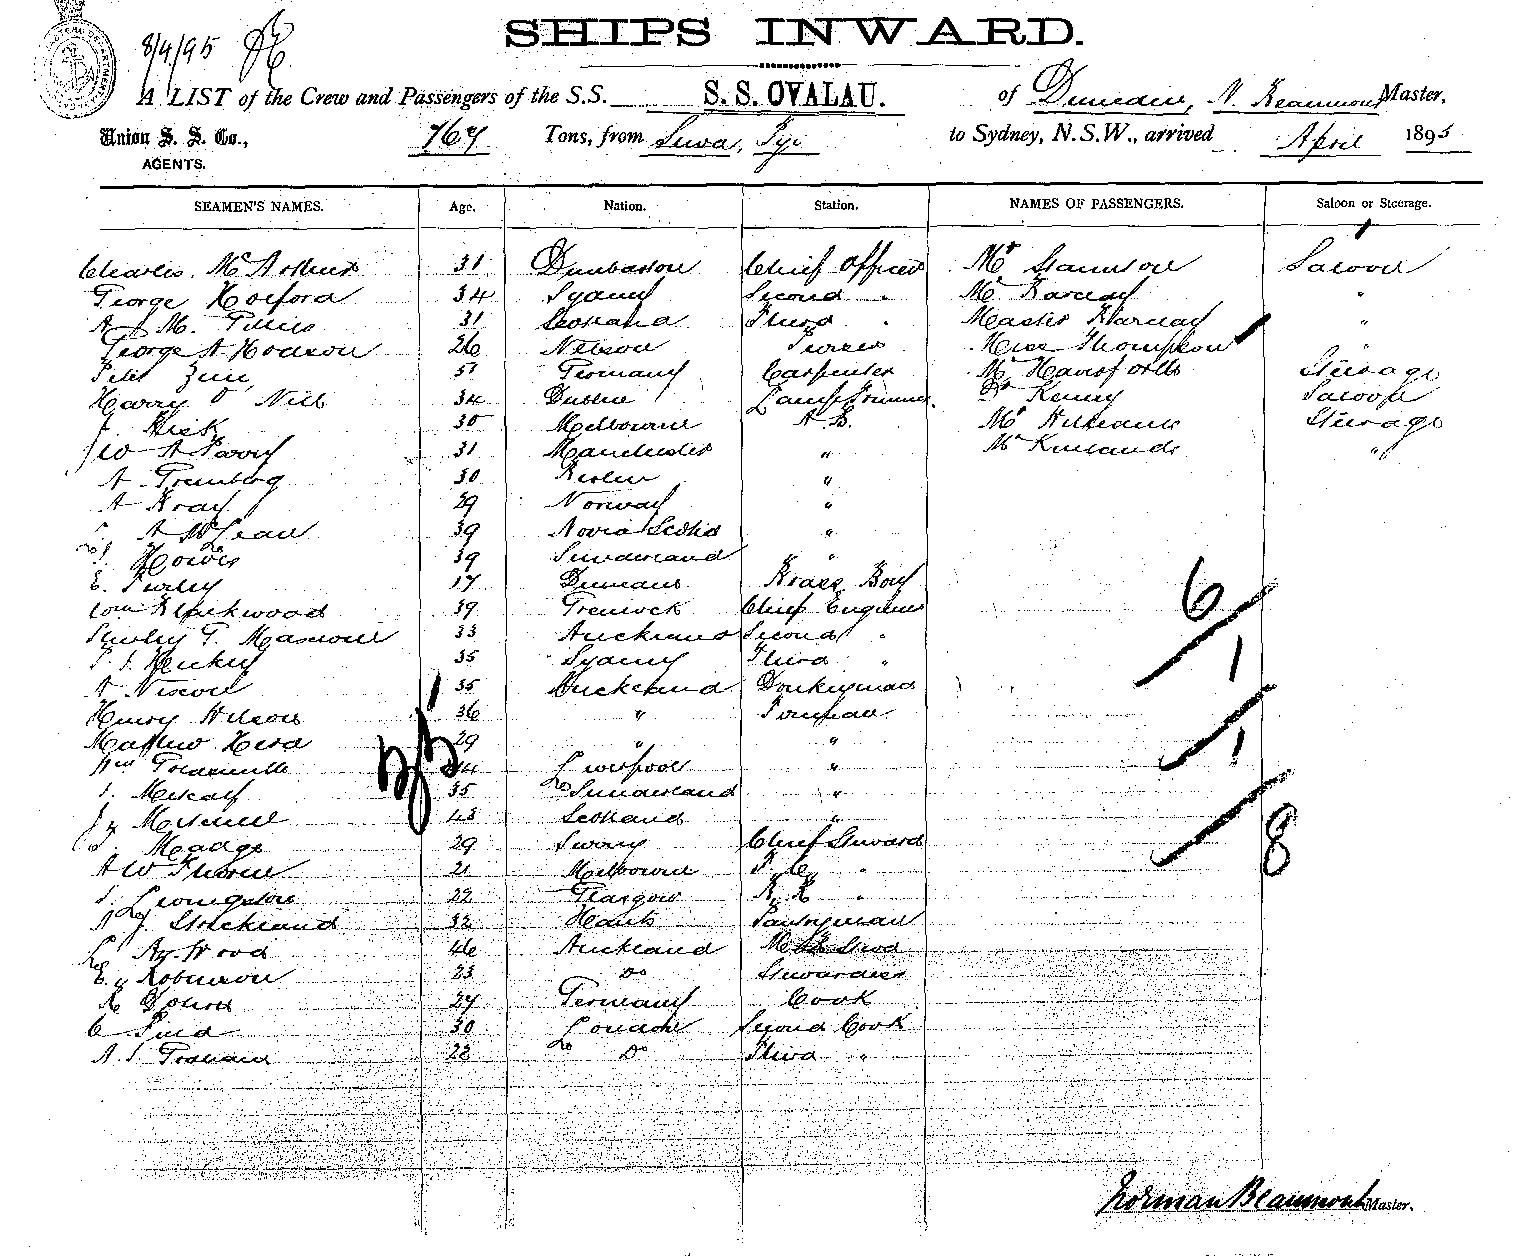 8/4/95
SHIPS INWARD.
A LIST of the Crew and Passengers of the S.S. S. S. OVALAU. of Dunedin, N. Beaumont Master,
Union S. S. Co., 769 Tons, from Suva, Fiji to Sydney, N.S.W., arrived April 1895
AGENTS.
SEAMEN'S NAMES. Age. Nation. Station. NAMES OF PASSENGERS. Saloon or Steerage.
Charles McArthur 31 Dunbarton Chief Officer Mr Saloon
George Horford 34 Sydney Second " Mr Barclay "
A J M. 31 Scotland Third " Master Barclay "
George A Hodson 26 Nelson Purser Miss Thompson "
Peter 51 Germany Carpenter Mr Steerage
Harry O'Neil 34 Dublin Lamp Trimmer Dr Kenny Saloon
J. Hick 30 Melbourne A B. Mr Williams Steerage
J W A Parry 31 Manchester " Mr "
A 30 Berlin "
A Bray 29 Norway "
A McLean 39 Nova Scotia "
J. Howes 39 Sunderland " "
E. Turley 17 Brass Boy
Wm Blackwood 39 Greenock Chief Engineer 6
Stanley G. 33 Auckland Second "
Hickey 35 Sydney Third " 1
A Nixon 35 Auckland Donkeyman
Henry Wilson 36 " Fireman
Matthew Herd 29 " " 1
Wm 44 Liverpool "
J. Metcalf 35 Sunderland "
J. Mitchell 43 Scotland " 8
J. Madge 29 Surrey Chief Steward
A W Thorne 21 Melbourne F. C. "
J. Livingstone 22 Glasgow B. R "
A J. Strickland 32 Hants Pantryman
Hy. Wood 46 Auckland
E. Robinson 23 Do Stewardess
27 Germany Cook
C 30 London Second Cook
A. J. Graham 22 Do Third "
Norman Beaumont Master.